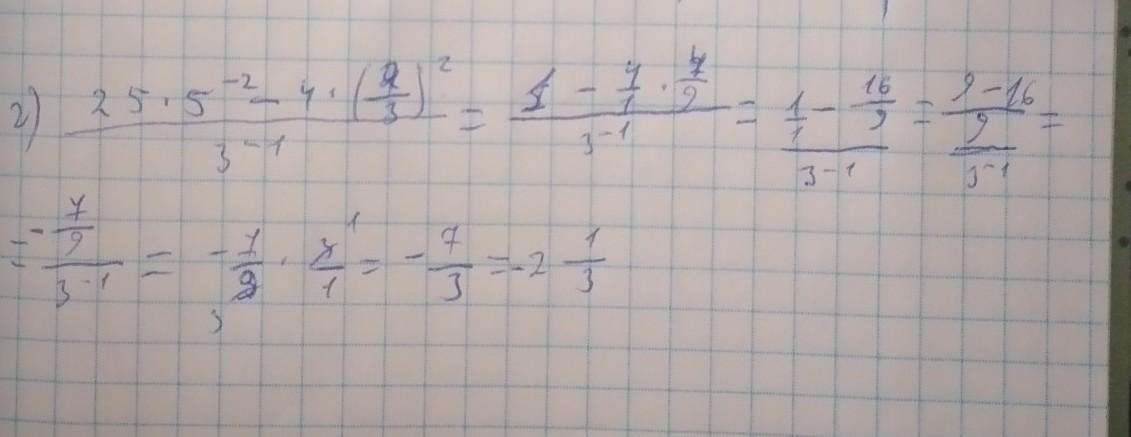 г) \frac{25 \cdot 5^{-2} - 4 \cdot \left(\frac{2}{3}\right)^2}{3^{-1}} = \frac{1 - \frac{4}{1} \cdot \frac{4}{9}}{3^{-1}} = \frac{\frac{1}{1} - \frac{16}{9}}{3^{-1}} = \frac{\frac{9-16}{9}}{3^{-1}} =
= \frac{-\frac{7}{9}}{3^{-1}} = -\frac{7}{9} \cdot \frac{3}{1} = -\frac{7}{3} = -2\frac{1}{3}